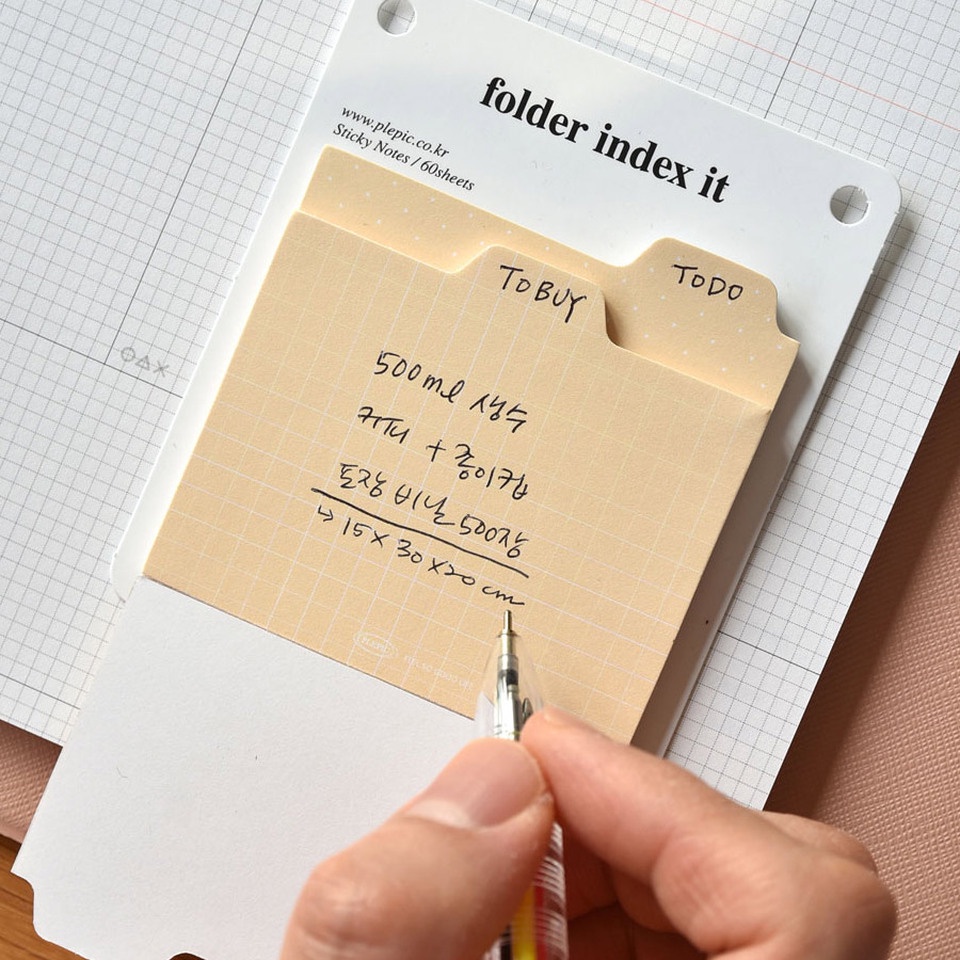 folder index it
www.plepic.co.kr
Sticky Notes / 60sheets
TO BUY
TO DO
500ml 생수
커피 + 종이컵
포장 비닐 500장
↳ 15 x 30 x 20 cm